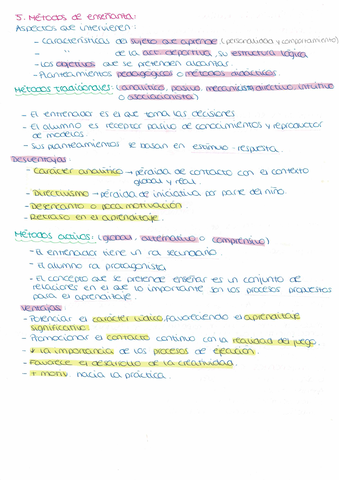 5. Métodos de enseñanza:
Aspectos que intervienen:
- Características del sujeto que aprende (personalidad y comportamiento)
- " de la act. deportiva, su estructura lógica
- Los objetivos que se pretenden alcanzar.
- Planteamientos pedagógicos o métodos didácticos.
Métodos tradicionales: (analítico, pasivo, mecanicista, directivo, intuitivo
o asociacionista)
- El entrenador es el que toma las decisiones
- El alumno es receptor pasivo de conocimientos y reproductor
de modelos.
- Sus planteamientos se basan en estímulo-respuesta.
Desventajas:
- Carácter analítico → pérdida de contacto con el contexto
global y real.
- Directivismo → pérdida de iniciativa por parte del niño.
- Desencanto o poca motivación.
- Retraso en el aprendizaje.
Métodos activos: (global, alternativo o comprensivo)
- El entrenador tiene un rol secundario.
- El alumno rol protagonista
- El concepto que se pretende enseñar es un conjunto de
relaciones en el que lo importante son los procesos propuestos
para el aprendizaje.
Ventajas:
- Potenciar el carácter lúdico, favoreciendo el aprendizaje
significativo.
- Promocionar el contacto continuo con la realidad del juego.
- + la importancia de los procesos de ejecución.
- Favorece el desarrollo de la creatividad.
- + motiv. hacia la práctica.